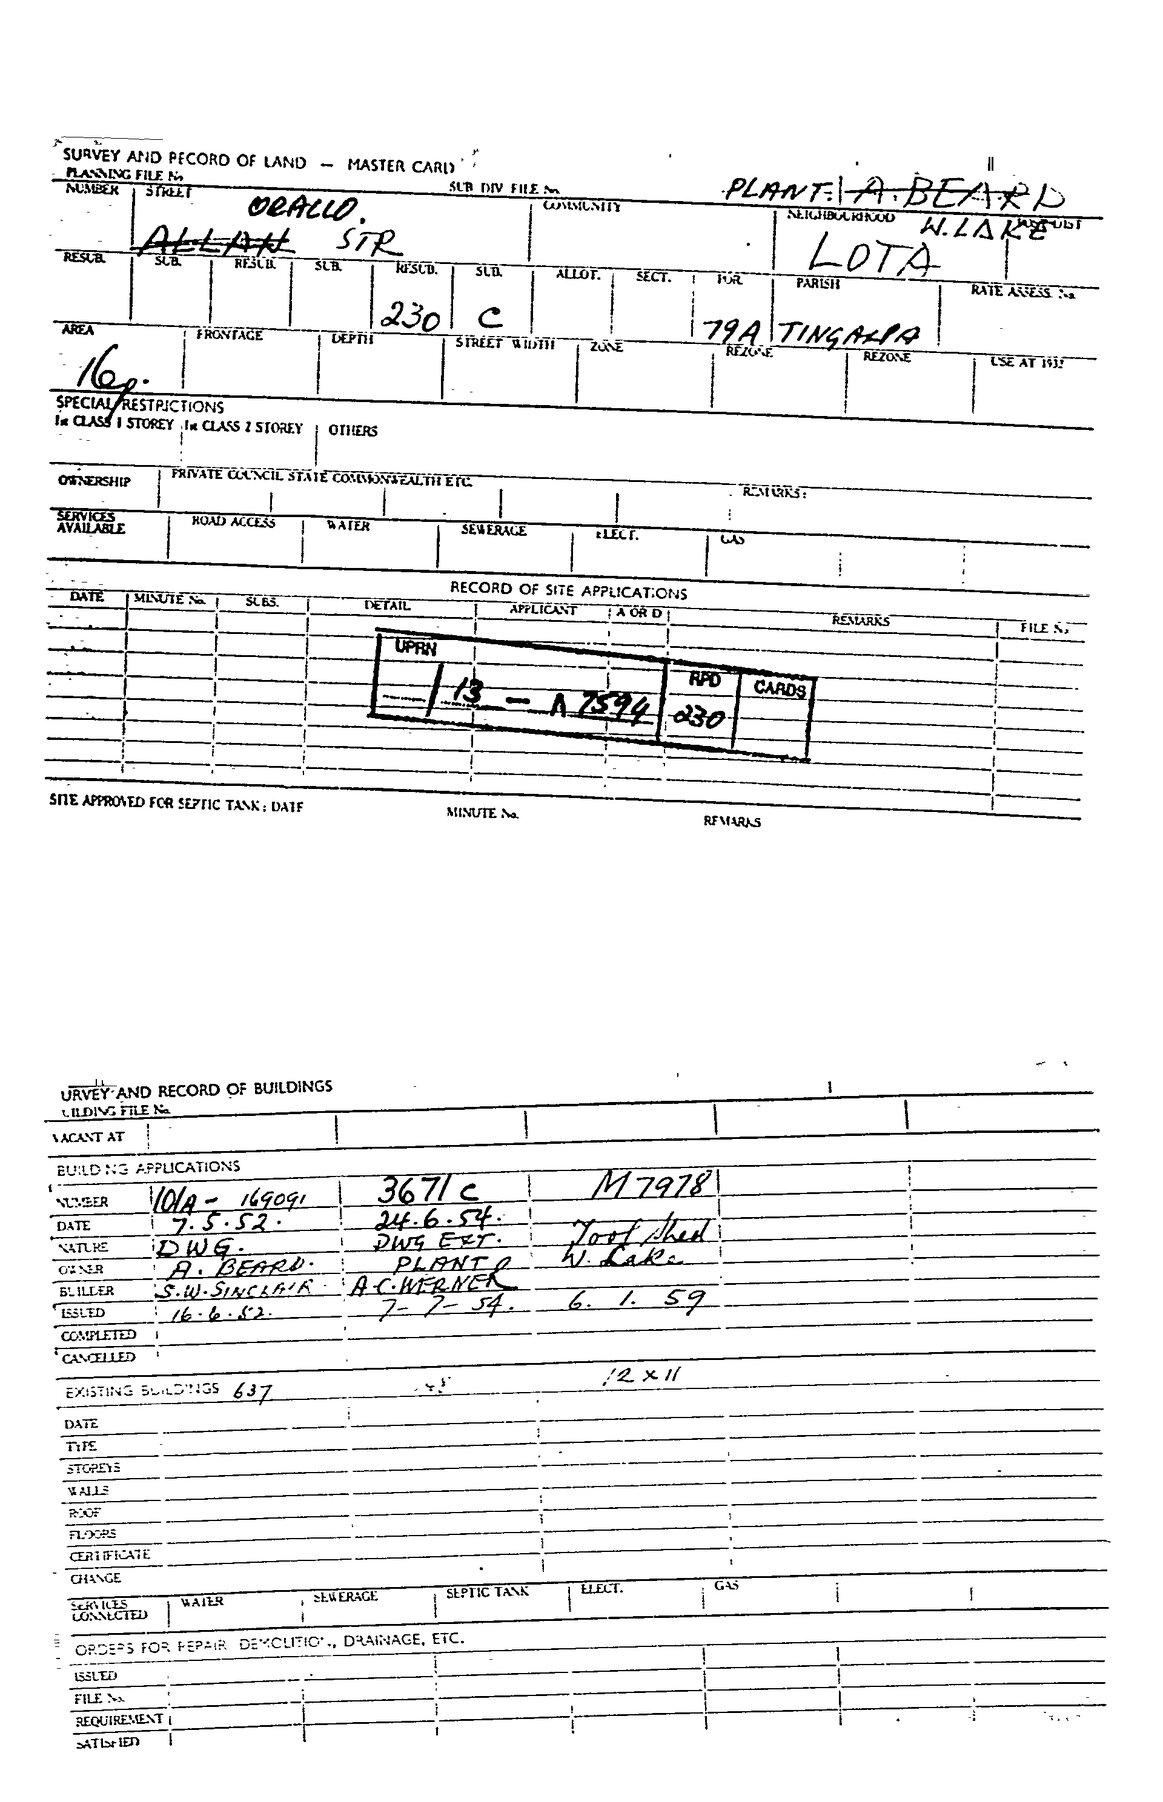 SURVEY AND RECORD OF LAND — MASTER CARD
PLANNING FILE No SUB DIV FILE No. PLANT. A. BEARD
NUMBER STREET COMMUNITY NEIGHBOURHOOD W. LAKE POST DIST
ORALLO.
ALLAN STR LOTA
RESUB. SUB. RESUB. SUB. RESUB. SUB. ALLOT. SECT. POR. PARISH RATE ASSESS. No.
230 C 79A TINGALPA
AREA FRONTAGE DEPTH STREET WIDTH ZONE REZONE REZONE USE AT 1932
16p.
SPECIAL RESTRICTIONS
1st CLASS 1 STOREY 1st CLASS 2 STOREY OTHERS
OWNERSHIP PRIVATE COUNCIL STATE COMMONWEALTH ETC. REMARKS:
SERVICES AVAILABLE ROAD ACCESS WATER SEWERAGE ELECT. GAS
RECORD OF SITE APPLICATIONS
DATE MINUTE No. SUBS. DETAIL APPLICANT A OR D REMARKS FILE No
UPRN RPD CARDS
/ 13 — A 7594 230
SITE APPROVED FOR SEPTIC TANK: DATE MINUTE No. REMARKS
URVEY AND RECORD OF BUILDINGS
UILDING FILE No.
VACANT AT
BUILDING APPLICATIONS
NUMBER 101A - 169091 3671 C M7978
DATE 7.5.52. 24.6.54.
NATURE DWG. DWG EXT. Tool Shed
OWNER A. BEARD. PLANT W. Lake
BUILDER S.W. SINCLAIR A.C. WERNER
ISSUED 16.6.52. 7-7-54. 6. 1. 59
COMPLETED
CANCELLED
EXISTING BUILDINGS 637 12 x 11
DATE
TYPE
STOREYS
WALLS
ROOF
FLOORS
CERTIFICATE
CHANGE
SERVICES CONNECTED WATER SEWERAGE SEPTIC TANK ELECT. GAS
ORDERS FOR REPAIR DEMOLITION, DRAINAGE, ETC.
ISSUED
FILE No.
REQUIREMENT
SATISFIED